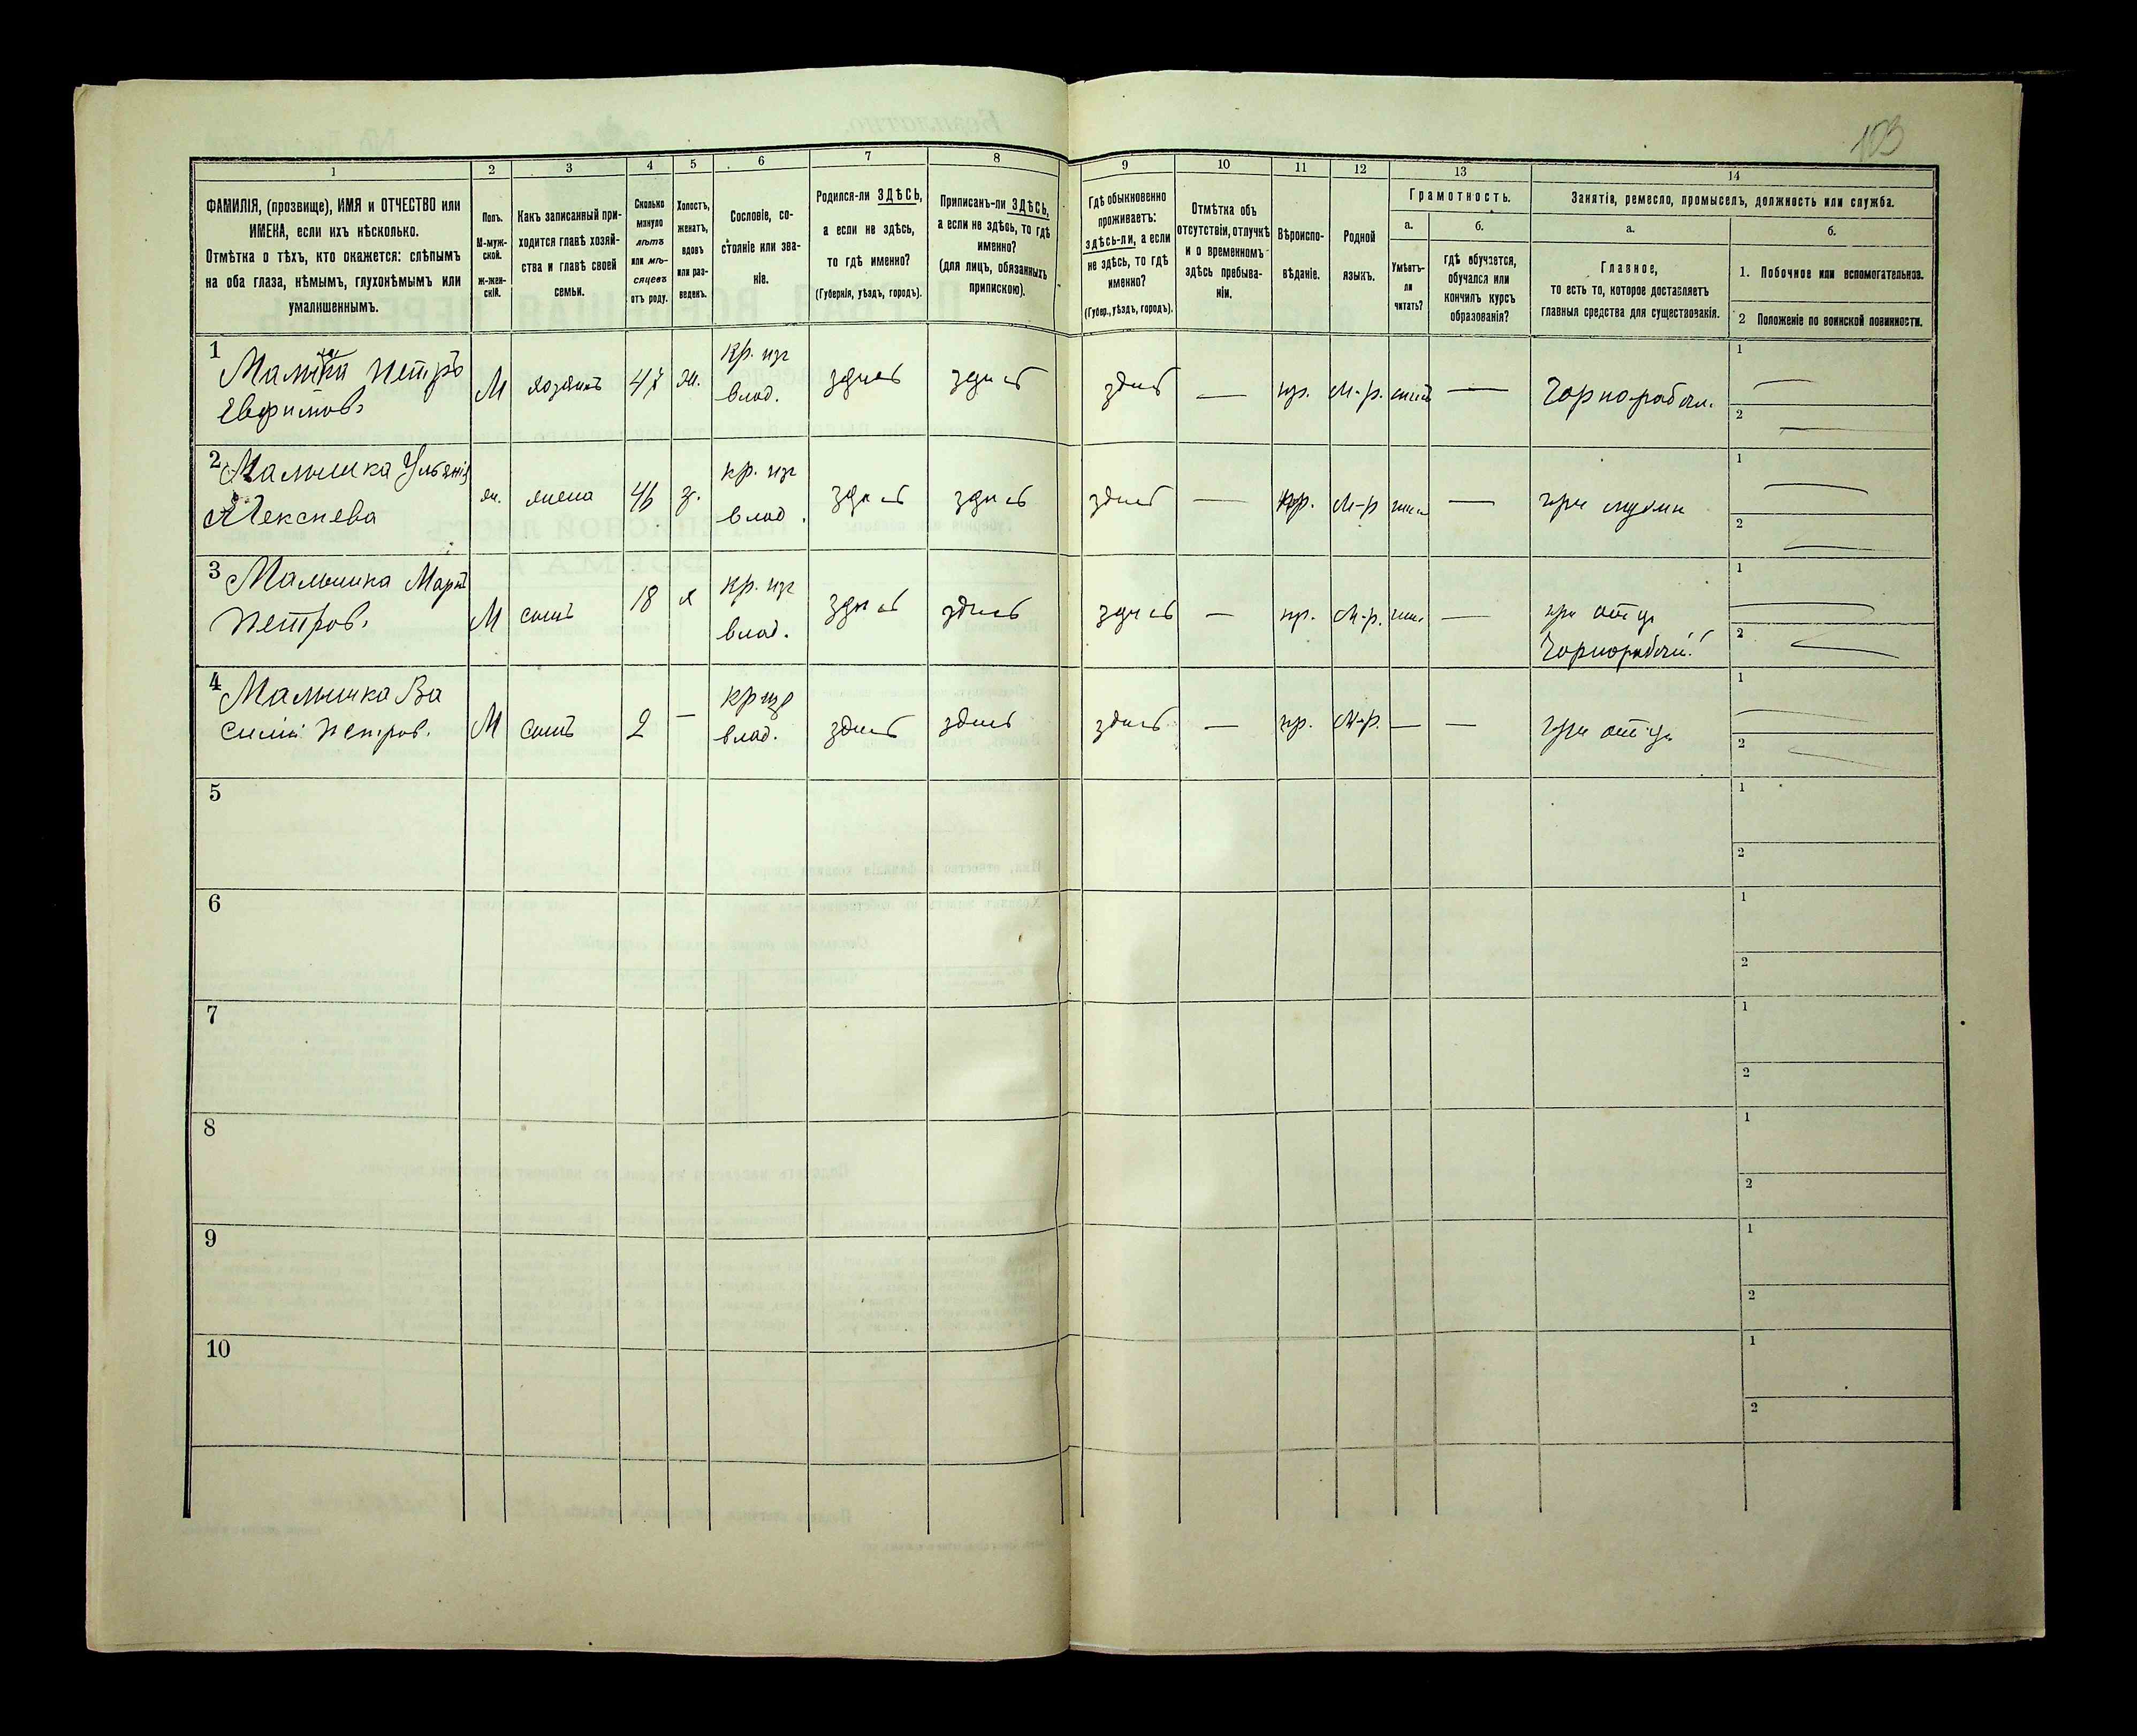 103
1
2
3
4
5
6
7
8
9
10
11
12
13
14
ФАМИЛІЯ, (прозвище), ИМЯ и ОТЧЕСТВО или
ИМЕНА, если ихъ нѣсколько.
Отмѣтка о тѣхъ, кто окажется: слѣпымъ
на оба глаза, нѣмымъ, глухонѣмымъ или
умалишеннымъ.
Полъ.
М-муж-
ской.
ж-жен-
скій.
Какъ записанный при-
ходится главѣ хозяй-
ства и главѣ своей
семьи.
Сколько
минуло
лѣтъ
или мѣ-
сяцевъ
отъ роду.
Холостъ,
женатъ,
вдовъ
или раз-
веденъ.
Сословіе, со-
стояніе или зва-
ніе.
Родился-ли ЗДѢСЬ,
а если не здѣсь,
то гдѣ именно?
(Губернія, уѣздъ, городъ).
Приписанъ-ли ЗДѢСЬ,
а если не здѣсь, то гдѣ
именно?
(для лицъ, обязанныхъ
припискою).
Гдѣ обыкновенно
проживаетъ:
здѣсь-ли, а если
не здѣсь, то гдѣ
именно?
(Губер., уѣздъ, городъ).
Отмѣтка объ
отсутствіи, отлучкѣ
и о временномъ
здѣсь пребыва-
ніи.
Вѣроиспо-
вѣданіе.
Родной
языкъ.
Грамотность.
а.
Умѣетъ-
ли
читать?
б.
гдѣ обучается,
обучался или
кончилъ курсъ
образованія?
Занятія, ремесло, промыселъ, должность или служба.
а.
Главное,
то есть то, которое доставляетъ
главныя средства для существованія.
б.
1. Побочное или вспомогательное.
2 Положеніе по воинской повинности.
1
Петръ
Евфимовъ
М хозяинъ 47 ж. кр. из
влад. здѣсь здѣсь здѣсь — пр. М-р. — Чорнорабочи.
1
2
2 Малышка Ульянія
Алексѣева
ж. жена 46 з. кр. из
влад. здѣсь здѣсь здѣсь — пр. М-р — при мужѣ
1
2
3 Малышка Марк
Петров.
М сынъ 18 х кр. из
влад. здѣсь здѣсь здѣсь — пр. М-р. — при отцѣ
Чорнорабочій.
1
2
4 Малышка Ва
силій Петров.
М сынъ 2 — кр из
влад. здѣсь здѣсь здѣсь — пр. М-р. — — при отцѣ
1
2
5
1
2
6
1
2
7
1
2
8
1
2
9
1
2
10
1
2